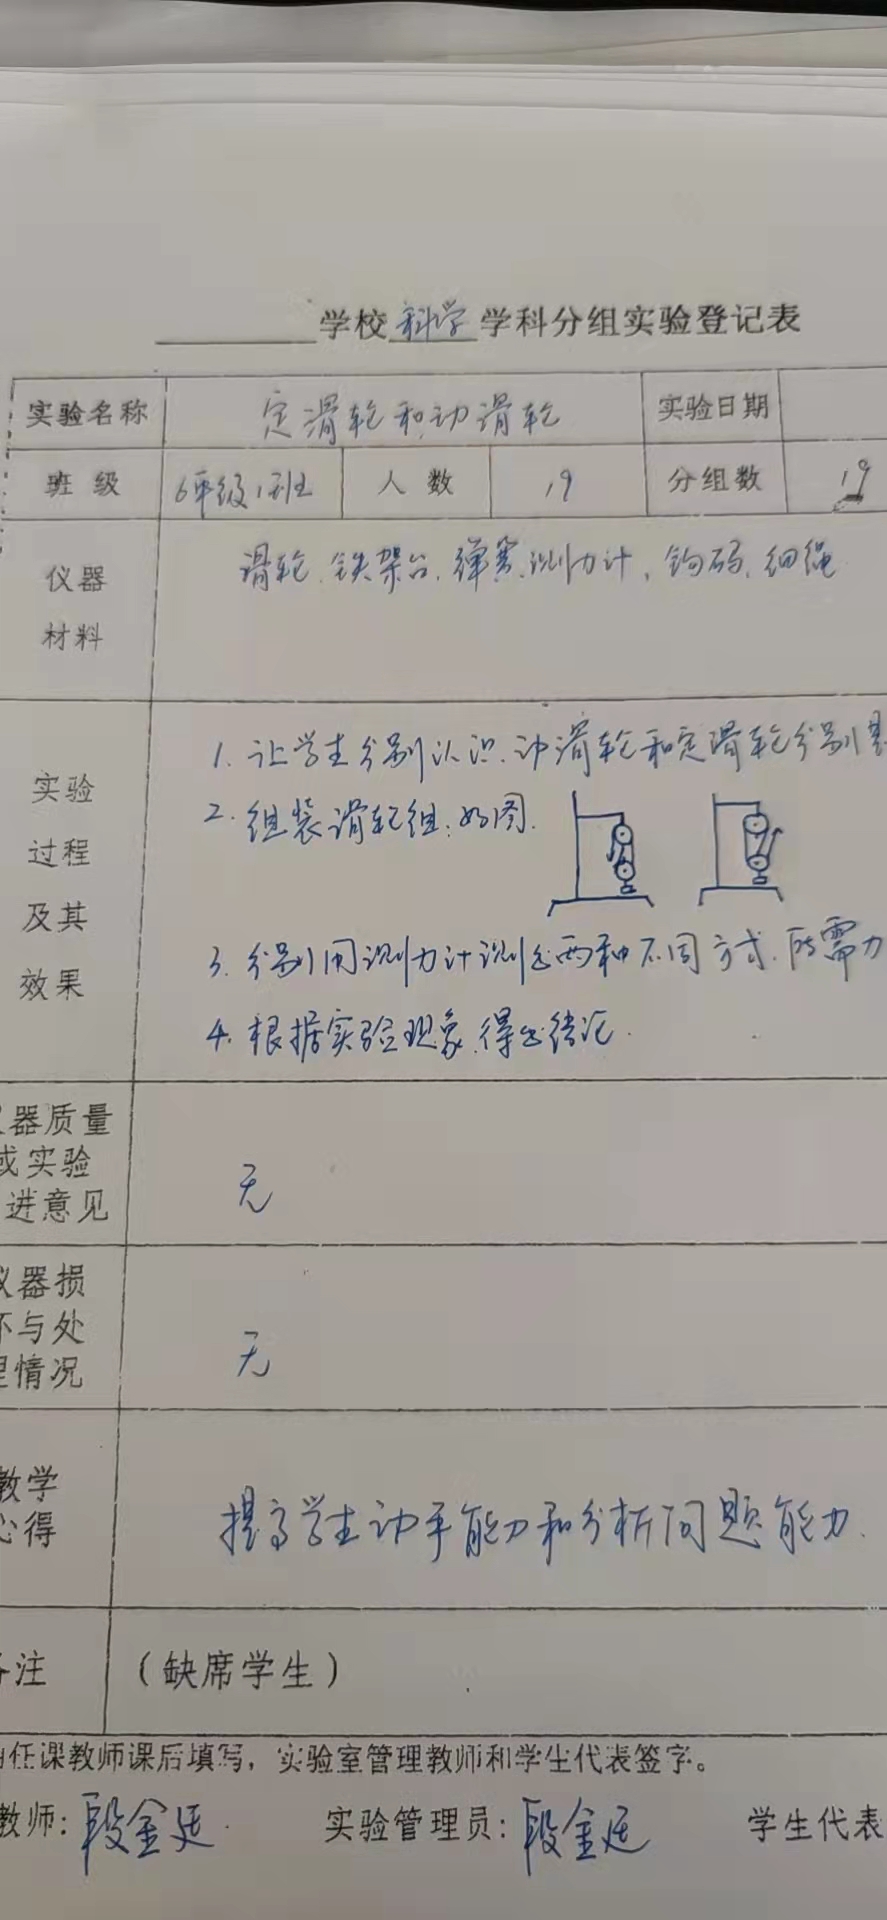 学校科学学科分组实验登记表
实验名称 定滑轮和动滑轮 实验日期
班级 6年级1班 人数 19 分组数 19
仪器
材料
滑轮、铁架台、弹簧测力计、钩码、细绳
实验
过程
及其
效果
1. 让学生分别认识动滑轮和定滑轮分别
2. 组装滑轮组:如图.
3. 分别用测力计测出两种不同方式所需力
4. 根据实验现象,得出结论.
器质量
或实验
进意见
无
仪器损
坏与处
理情况
无
教学
心得
提高学生动手能力和分析问题能力.
备注 (缺席学生)
任课教师课后填写,实验室管理教师和学生代表签字。
教师:段金廷 实验管理员:段金廷 学生代表